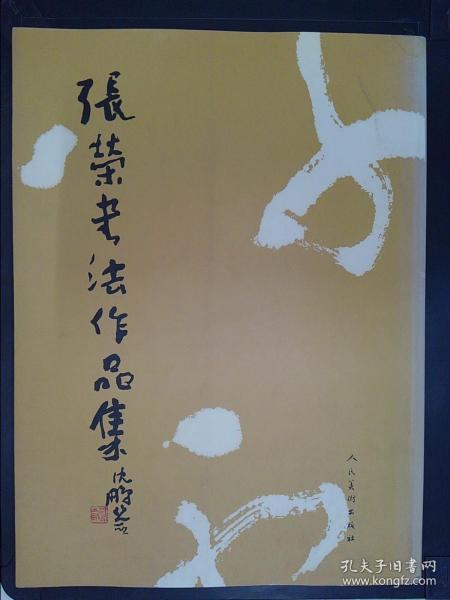 張荣书法作品集
沈鹏题
人民美術出版社
孔夫子旧书网
www.kongfz.com